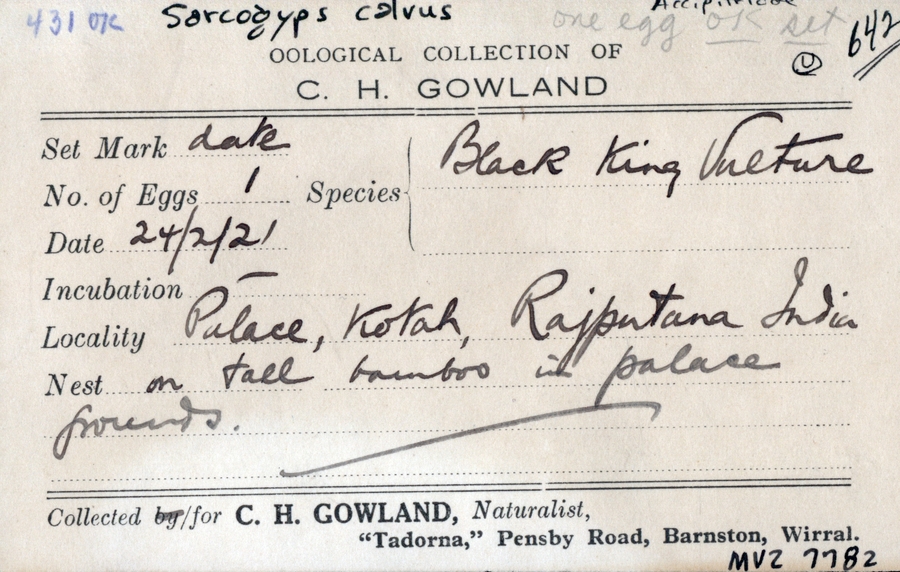 431 OK Sarcogyps calvus Accipitridae
one egg OK set 642
OOLOGICAL COLLECTION OF U
C. H. GOWLAND
Set Mark date
No. of Eggs 1 Species Black King Vulture
Date 24/2/21
Incubation —
Locality Palace, Kotah, Rajputana India
Nest on tall bamboo in palace
grounds.
Collected by/for C. H. GOWLAND, Naturalist,
"Tadorna," Pensby Road, Barnston, Wirral.
MVZ 7782